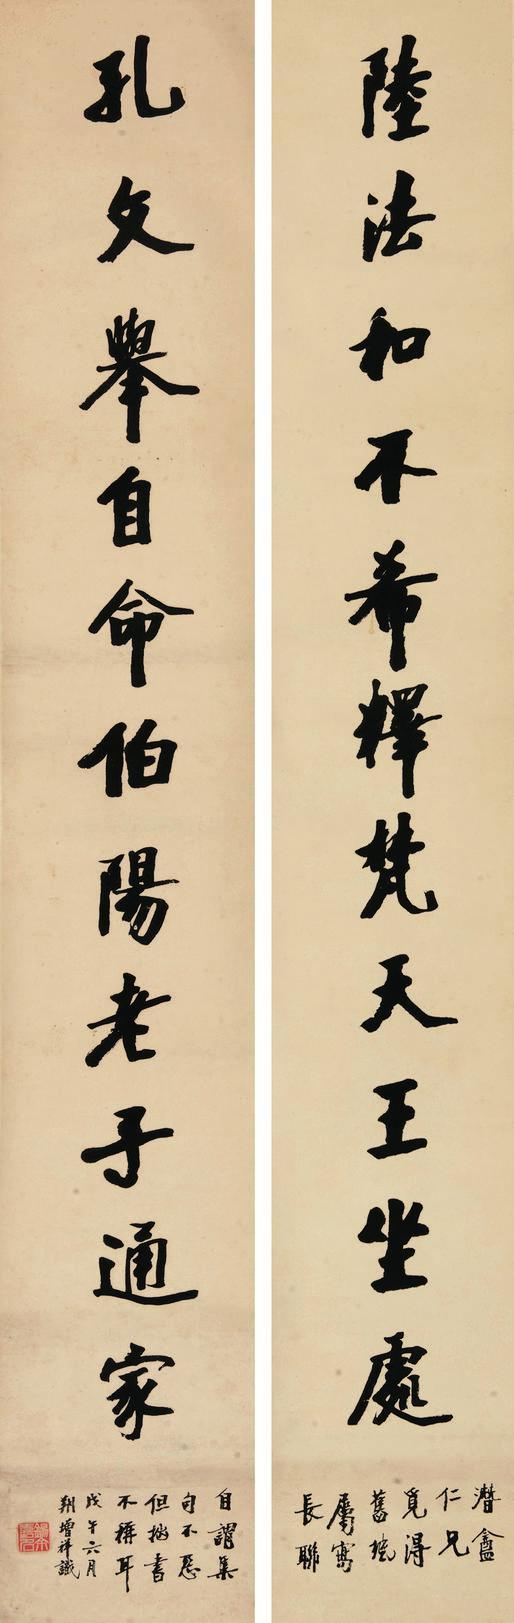 陸法和不希釋梵天王坐處
潛盦
仁兄
覓得
舊琖
屬寫
長聯
孔文舉自命伯陽老子通家
自謂集
句不惡
但拙書
不稱耳
戊午六月
增祥識